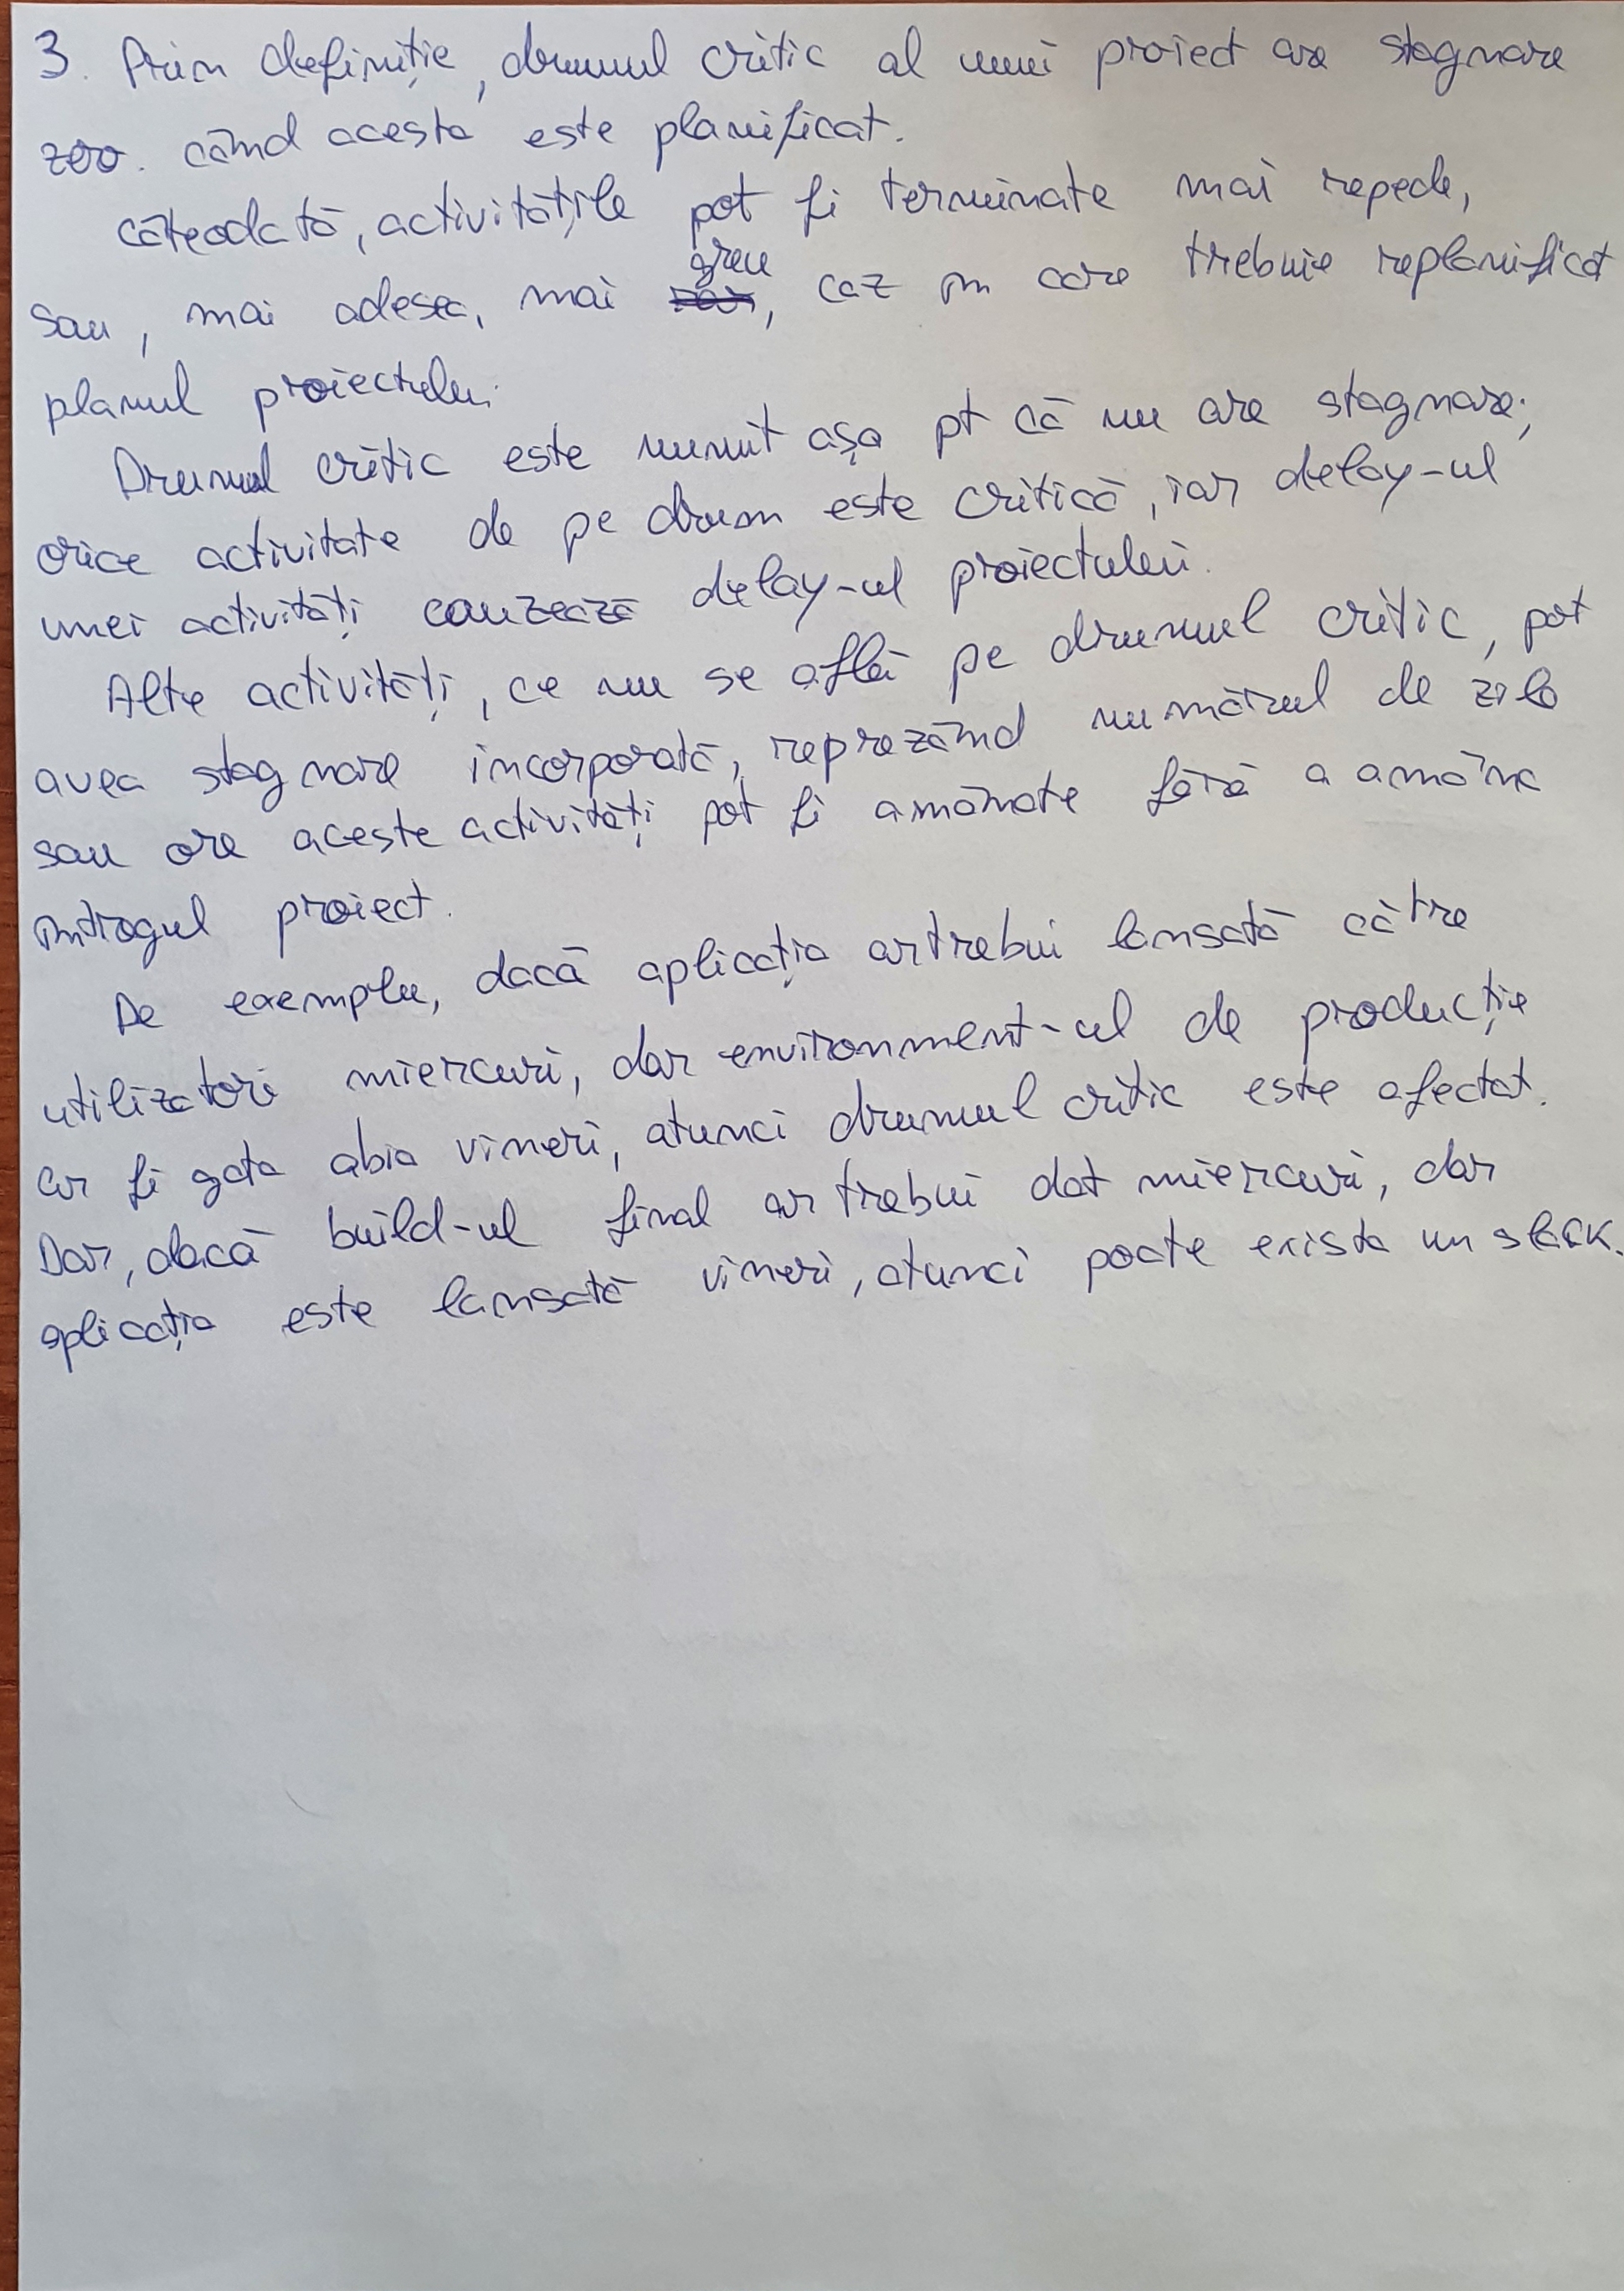 3. Prin definiție, drumul critic al unui proiect are stagnare
zero. când acesta este planificat.
câteodată, activitățile pot fi terminate mai repede,
sau, mai adesea, mai greu, caz în care trebuie replanificat
planul proiectului.
Drumul critic este numit așa pt că nu are stagnare;
orice activitate de pe drum este critică, iar delay-ul
unei activități cauzează delay-ul proiectului.
Alte activități, ce nu se află pe drumul critic, pot
avea stagnare incorporată, reprezând numărul de zile
sau ore aceste activități pot fi amânate fără a amâna
întregul proiect.
De exemplu, dacă aplicația ar trebui lansată către
utilizatori miercuri, dar environment-ul de producție
ar fi gata abia vineri, atunci drumul critic este afectat.
Dar, dacă build-ul final ar trebui dat miercuri, dar
aplicația este lansată vineri, atunci poate exista un slack.